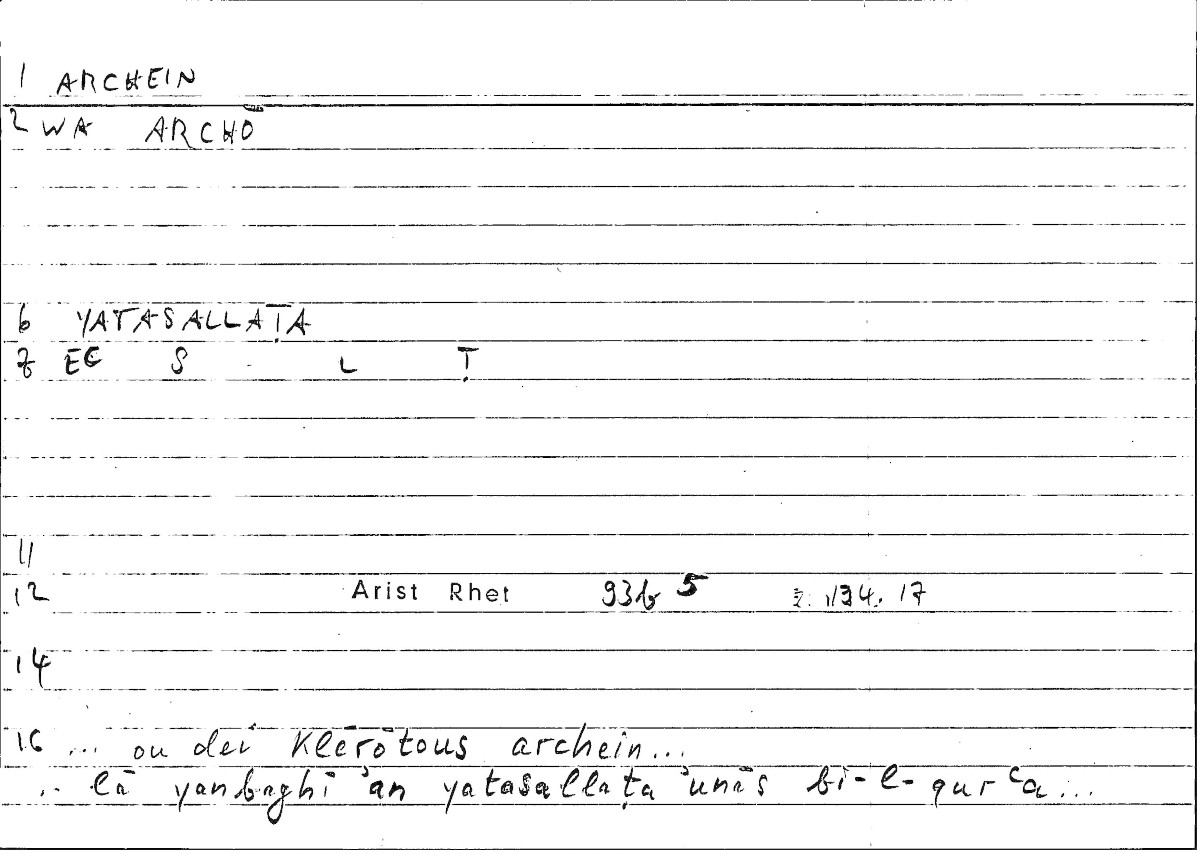 1 ARCHEIN
2 WA ARCHŌ
6 YATASALLAṬA
7 EC S L Ṭ
11
12 Arist Rhet 93b 5 134. 17
14
16 ... ou dei klērōtous archein...
.. lā yanbaghī ʾan yatasallaṭa ʾunās bi-l-qurʿa...